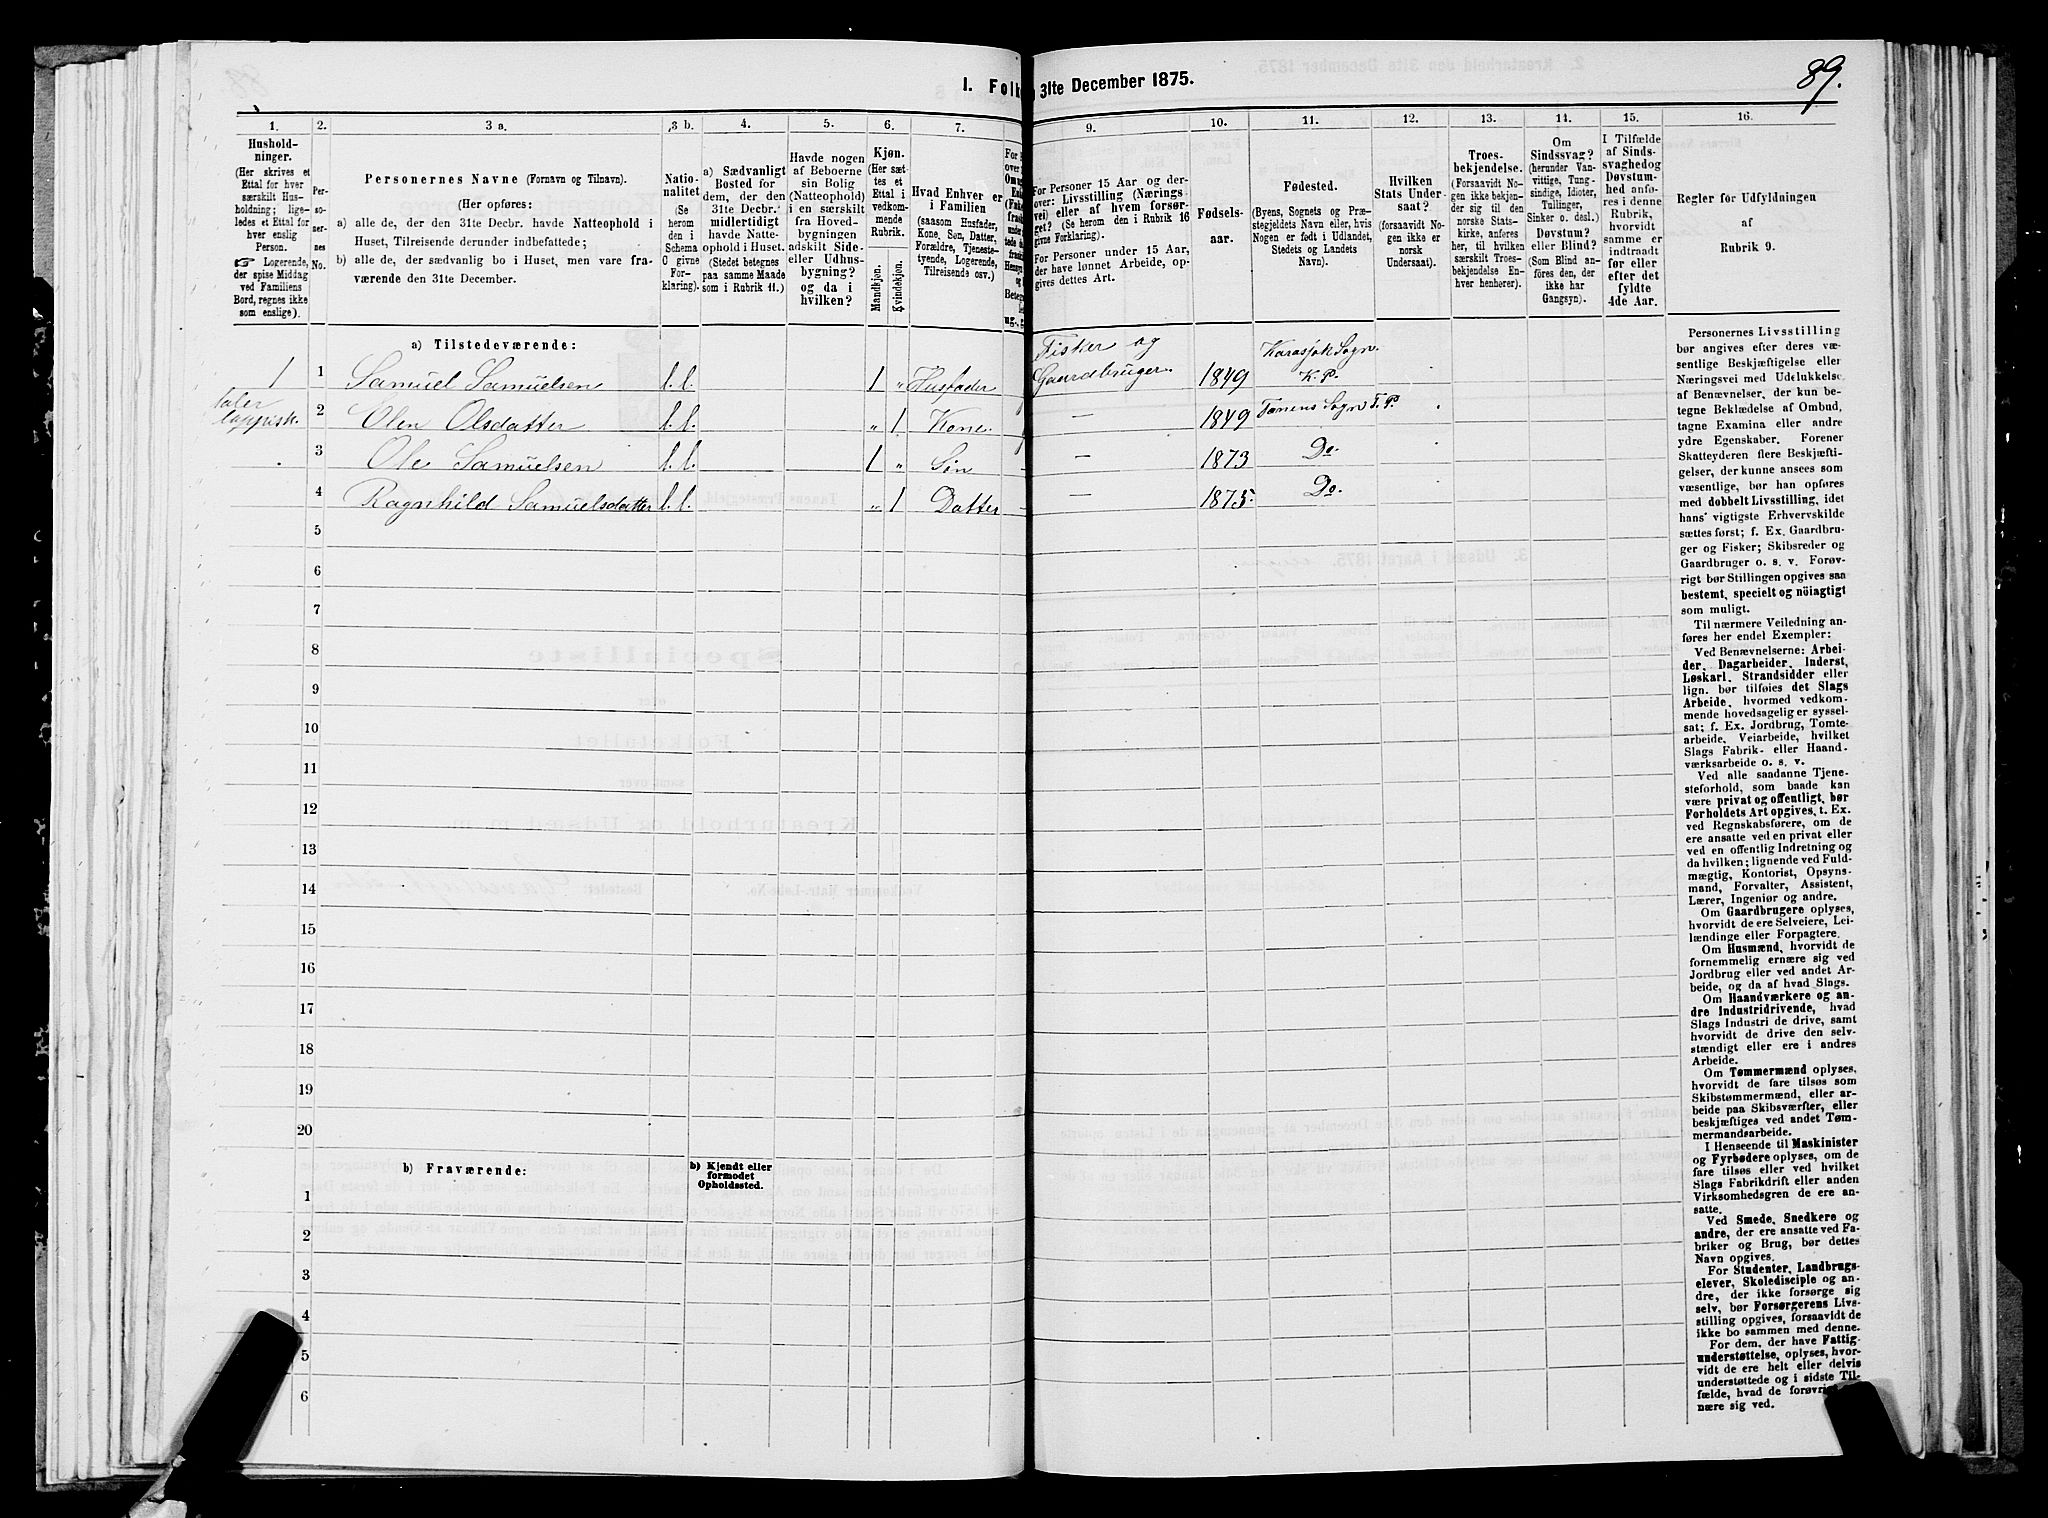 89.
I. Folk
31te December 1875.
1.
2.
3 a.
3 b.
4.
5.
6.
7.
9.
10.
11.
12.
13.
14.
15.
16.
Hushold-
ninger.
(Her skrives et
Ettal for hver
særskilt Hus-
holdning; lige-
ledes et Ettal for
hver enslig
Person.
☞ Logerende,
der spise Middag
ved Familiens
Bord, regnes ikke
som enslige).
Per-
so-
ner-
nes
No.
Personernes Navne (Fornavn og Tilnavn).
(Her opføres:
a) alle de, der den 31te Decbr. havde Natteophold i
Huset, Tilreisende derunder indbefattede;
b) alle de, der sædvanlig bo i Huset, men vare fra-
værende den 31te December.
Natio-
nalitet
(Se
herom
den i
Schema
O givne
For-
klaring).
a) Sædvanligt
Bosted for
dem, der den
31te Decbr.
midlertidigt
havde Natte-
ophold i Huset.
(Stedet betegnes
paa samme Maade
som i Rubrik 11.)
Havde nogen
af Beboerne
sin Bolig
(Natteophold)
i en særskilt
fra Hoved-
bygningen
adskilt Side-
eller Udhus-
bygning?
og da i
hvilken?
Kjøn.
(Her sæt-
tes et
Ettal i
vedkom-
mende
Rubrik.
Mandkjøn.
Kvindekjøn.
Hvad Enhver er
i Familien
(saasom Husfader,
Kone, Søn, Datter,
Forældre, Tjeneste-
tyende, Logerende,
Tilreisende osv.)
For Personer 15 Aar og der-
over: Livsstilling (Nærings-
vei) eller af hvem forsør-
get? (Se herom den i Rubrik 16
givne Forklaring).
For Personer under 15 Aar,
der have lønnet Arbeide, op-
gives dettes Art.
Fødsels-
aar.
Fødested.
(Byens, Sognets og Præ-
stegjeldets Navn eller, hvis
Nogen er født i Udlandet,
Stedets og Landets
Navn).
Hvilken
Stats Under-
saat?
(forsaavidt No-
gen ikke er
norsk
Undersaat).
Troes-
bekjendelse.
(Forsaavidt No-
gen ikke bekjen-
der sig til den
norske Stats-
kirke, anføres
her, til hvilken
særskilt Troes-
bekjendelse En-
hver henhører).
Om
Sindssvag?
(herunder Van-
vittige, Tung-
sindige, Idioter,
Tullinger,
Sinker o. desl.)
Døvstum?
eller Blind?
(Som Blind an-
føres den, der
ikke har
Gangsyn).
I Tilfælde
af Sinds-
svaghed og
Døvstum-
hed anfø-
res i denne
Rubrik,
hvorvidt
samme er
indtraadt
før eller
efter det
fyldte
4de Aar.
Regler for Udfyldningen
af
Rubrik 9.
a) Tilstedeværende:
1 1 Samuel Samuelsen l.l. 1 „ Husfader Fisker og Gaardbruger. 1849 Karasjok Sogn. K. P.
taler
lappisk.
2 Olen Olsdatter l.l. „ 1 Kone — 1849 Tanens Sogn T. P.
3 Ole Samuelsen l.l. 1 „ Søn — 1873 Do.
4 Ragnhild Samuelsdatter l.l. „ 1 Datter — 1875. Do.
5
6
7
8
9
10
11
12
13
14
15
16
17
18
19
20
b) Fraværende:
b) Kjendt eller
formodet
Opholdssted.
1
2
3
4
5
6
Personernes Livsstilling
bør angives efter deres væ-
sentlige Beskjæftigelse eller
Næringsvei med Udelukkelse
af Benævnelser, der kun be-
tegne Beklædelse af Ombud,
tagne Examina eller andre
ydre Egenskaber. Forener
Skatteyderen flere Beskjæfti-
gelser, der kunne ansees som
væsentlige, bør han opføres
med dobbelt Livsstilling, idet
hans vigtigste Erhvervskilde
sættes først; f. Ex. Gaardbru-
ger og Fisker; Skibsreder og
Gaardbruger o. s. v. Forøv-
rigt bør Stillingen opgives saa
bestemt, specielt og nöiagtigt
som muligt.
Til nærmere Veiledning an-
føres her endel Exempler:
Ved Benævnelserne: Arbei-
der, Dagarbeider, Inderst,
Løskarl, Strandsidder eller
lign. bør tilføies det Slags
Arbeide, hvormed vedkom-
mende hovedsagelig er syssel-
sat; f. Ex. Jordbrug, Tomte-
arbeide, Veiarbeide, hvilket
Slags Fabrik- eller Haand-
værksarbeide o. s. v.
Ved alle saadanne Tjene-
steforhold, som baade kan
være privat og offentligt, bør
Forholdets Art opgives, t. Ex.
ved Regnskabsførere, om de
ere ansatte ved en privat eller
ved en offentlig Indretning og
da hvilken; lignende ved Fuld-
mægtig, Kontorist, Opsyns-
mand, Forvalter, Assistent,
Lærer, Ingeniør og andre.
Om Gaardbrugere oplyses,
hvorvidt de ere Selveiere, Lei-
lændinge eller Forpagtere.
Om Husmænd, hvorvidt de
fornemmelig ernære sig ved
Jordbrug eller ved andet Ar-
beide, og da af hvad Slags.
Om Haandværkere og an-
dre Industridrivende, hvad
Slags Industri de drive, samt
hvorvidt de drive den selv-
stændigt eller ere i andres
Arbeide.
Om Tømmermænd oplyses,
hvorvidt de fare tilsøs som
Skibstømmermænd, eller ar-
beide paa Skibsværfter, eller
beskjæftiges ved andet Tøm-
mermandsarbeide.
I Henseende til Maskinister
og Fyrbødere oplyses, om de
fare tilsøs eller ved hvilket
Slags Fabrikdrift eller anden
Virksomhedsgren de ere an-
satte.
Ved Smede, Snedkere og
andre, der ere ansatte ved Fa-
briker og Brug, bør dettes
Navn opgives.
For Studenter, Landbrugs-
elever, Skoledisciple og an-
dre, der ikke forsørge sig
selv, bør Forsørgerens Livs-
stilling opgives, forsaavidt de
ikke bo sammen med denne.
For dem, der have Fattig-
understøttelse, oplyses, hvor-
vidt de ere helt eller delvis
understøttede og i sidste Til-
fælde, hvad de forøvrigt
nære sig ved.